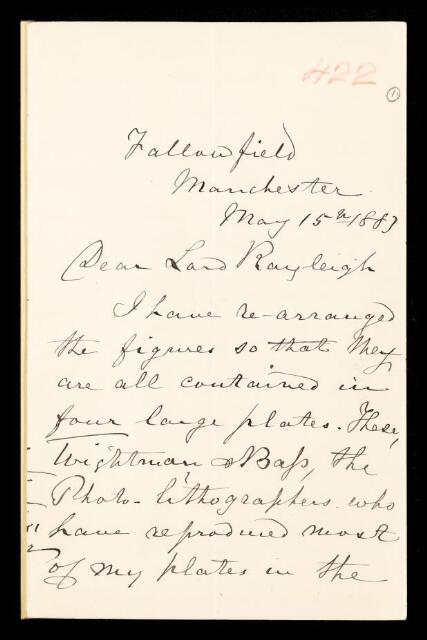 422
1
Fallowfield
Manchester.
May 15th 1883
Dear Lord Rayleigh
I have re-arranged
the figures so that they
are all contained in
four large plates. These,
Wightman & Bass, the
Photo-lithographers who
have reproduced most
of my plates in the